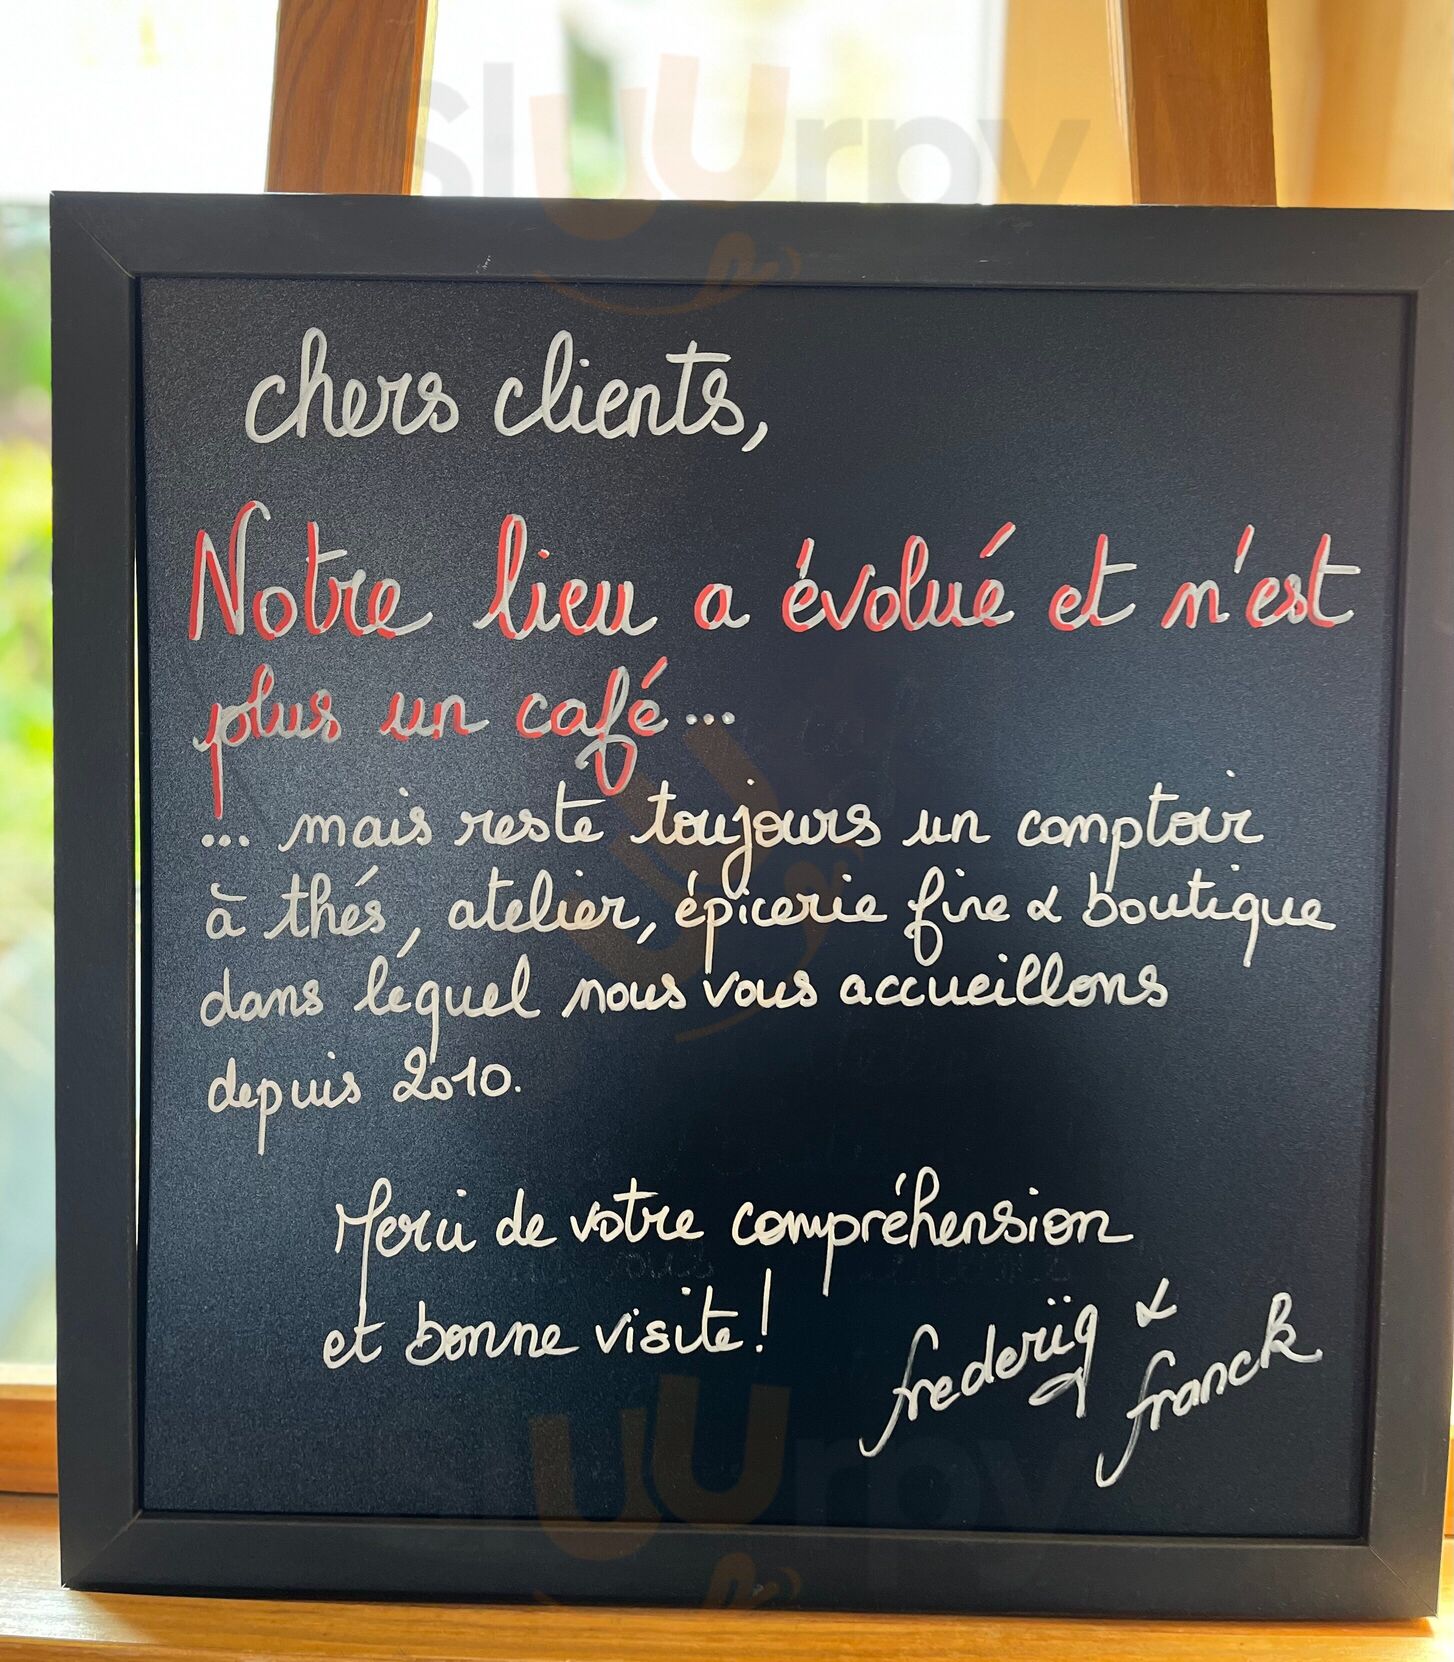 Sluurpy
chers clients,
Notre lieu a évolué et n'est
plus un café...
... mais reste toujours un comptoir
à thés, atelier, épicerie fine & boutique
dans lequel nous vous accueillons
depuis 2010.
Merci de votre compréhension
et bonne visite!
frederiq &
franck
Sluurpy